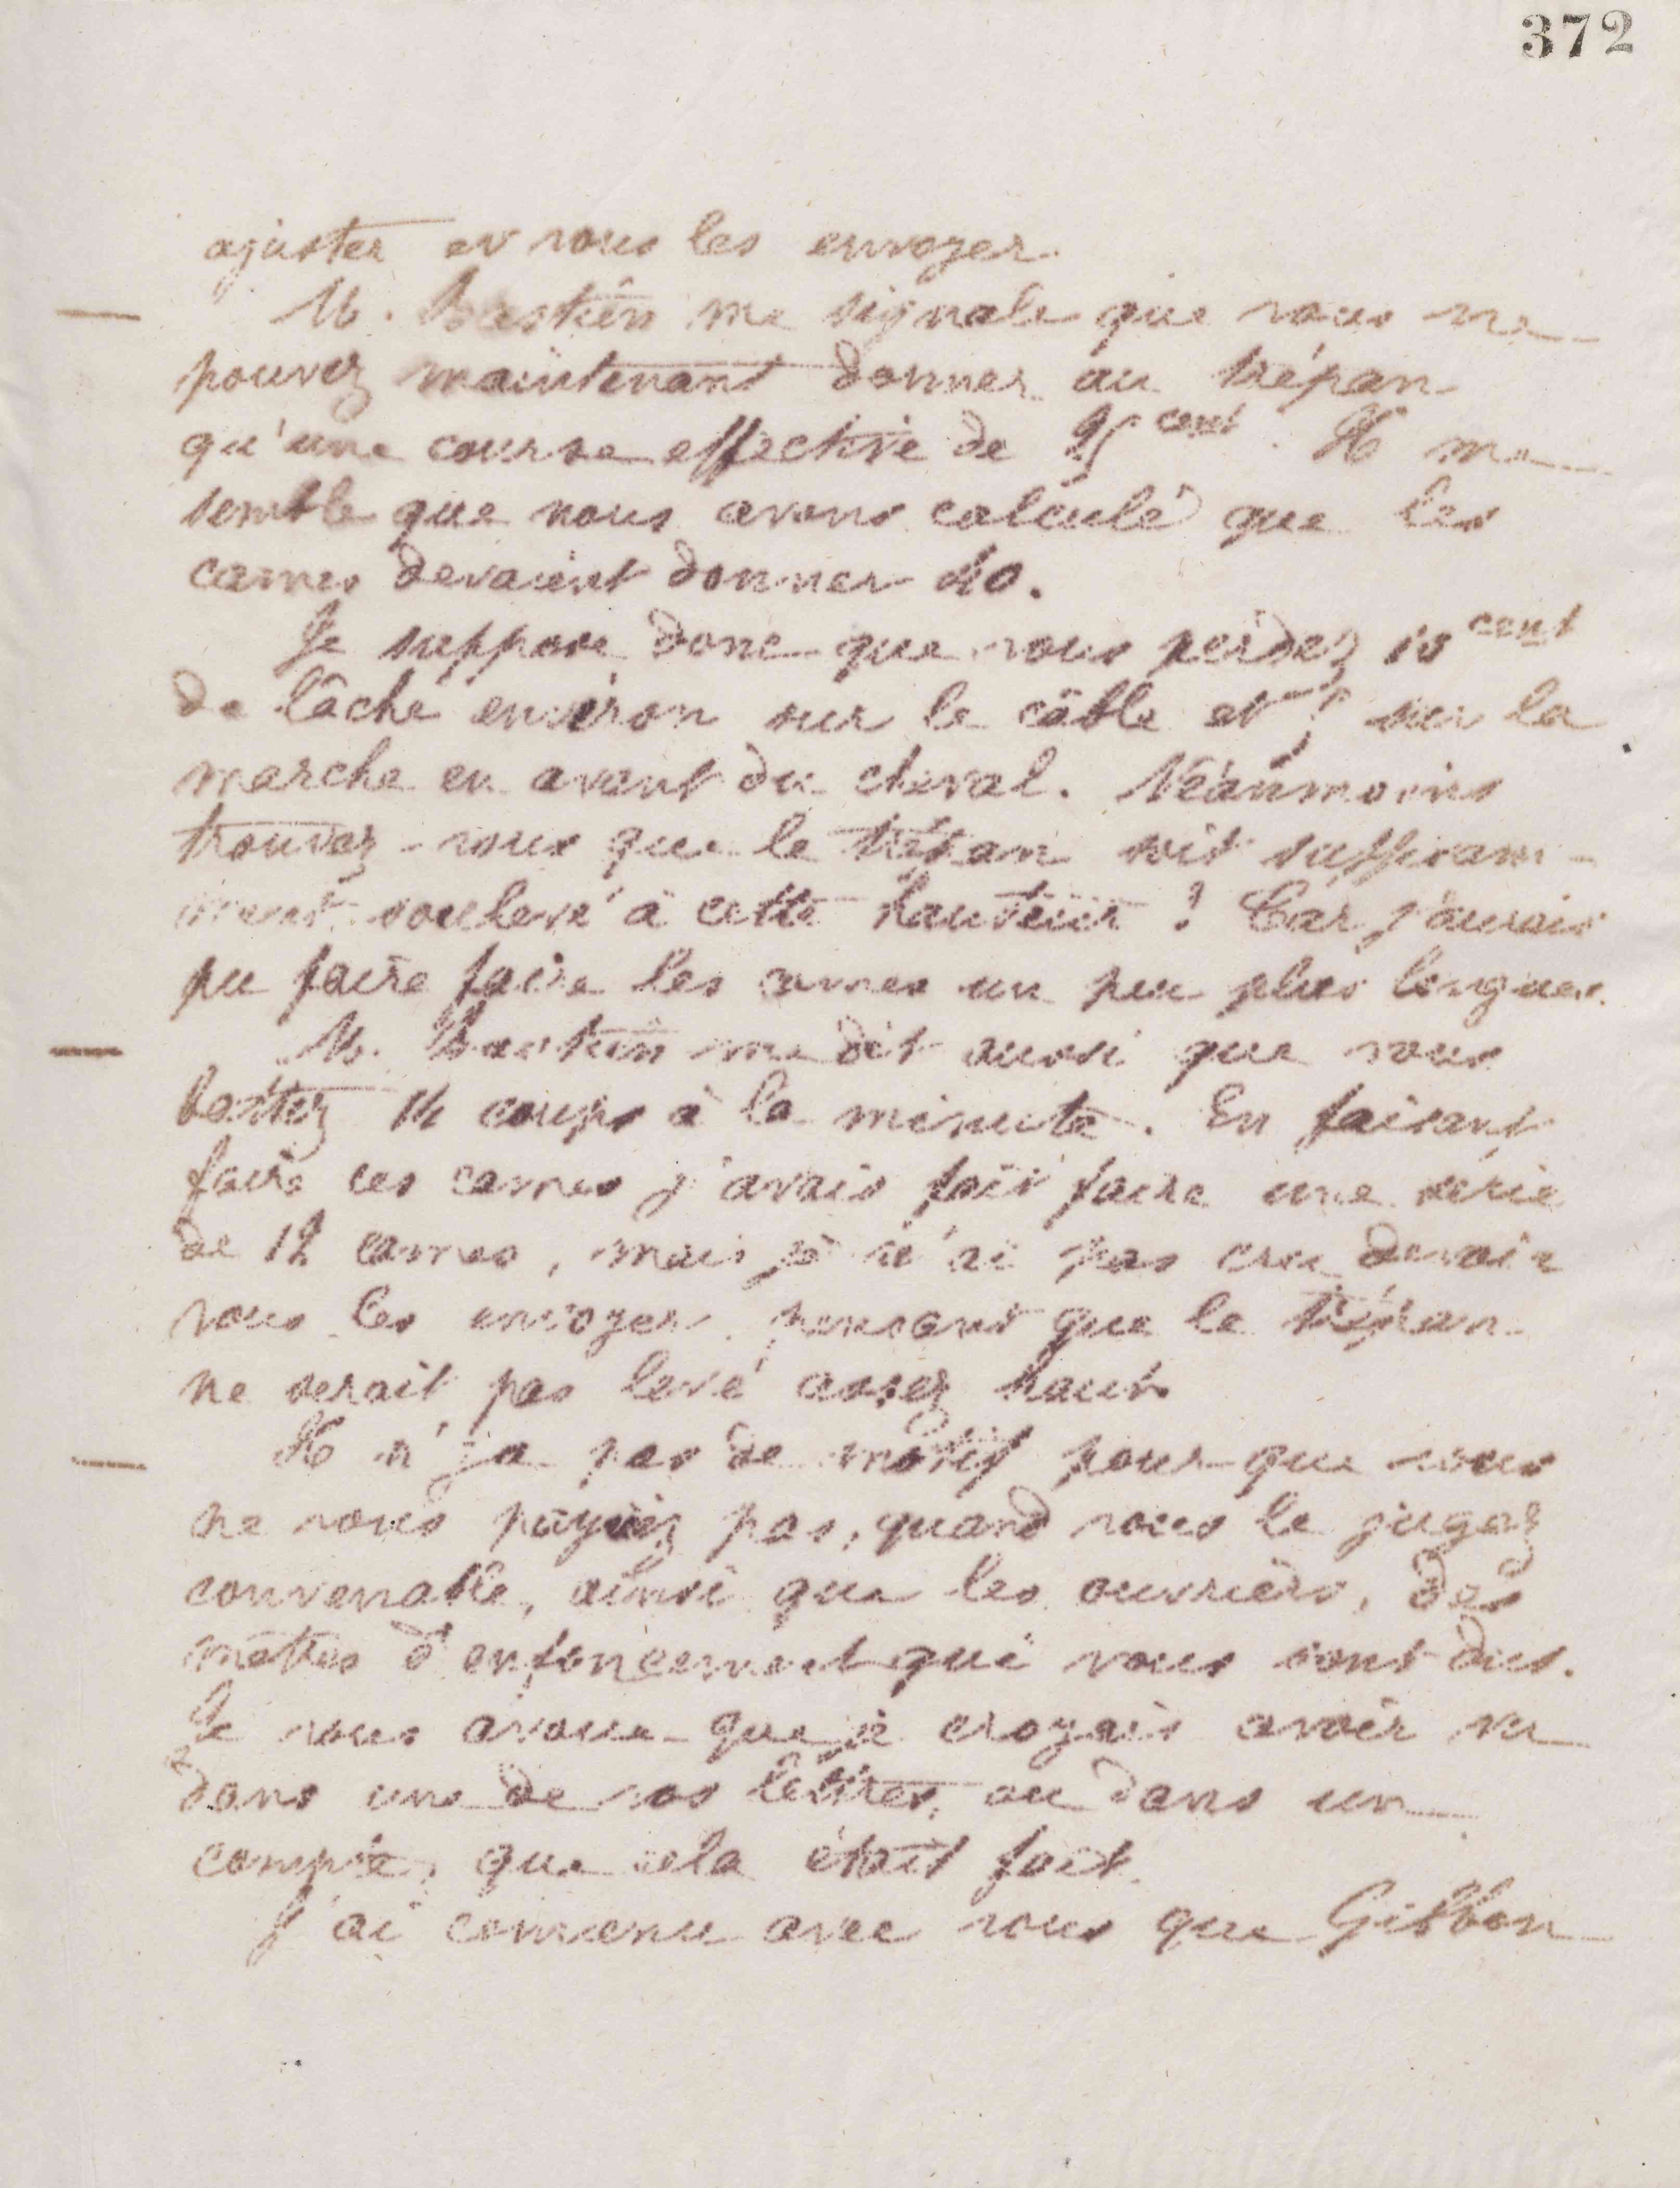 372
ajuster et vous les envoyer.
M. Bastien me signale que vous ne
pouvez maintenant donner au trépan
qu'une course effective de 25 cent. Il me
semble que nous avons calculé que les
cames devaient donner 40.
Je suppose donc que vous perdez 10 cent
de lâché environ sur le câble et 5 sur la
marche en avant du cheval. Néanmoins
trouvez-vous que le trépan soit suffisam-
ment soulevé à cette hauteur ? Car j'aurais
pu faire faire les cames un peu plus longues.
M. Bastien me dit aussi que vous
battez 14 coups à la minute. En faisant
faire ces cames j'avais fait faire une série
de 12 cames, mais je n'ai pas cru devoir
vous les envoyer, pensant que le trépan
ne serait pas levé assez haut.
Il n'y a pas de motif pour que vous
ne vous payiez pas, quand vous le jugez
convenable, ainsi que les ouvriers, des
mètres d'enfoncement qui vous sont dus.
Je vous avoue que je croyais avoir vu
dans une de vos lettres, ou dans un
compte, que cela était fait.
J'ai convenu avec vous que Gibbon